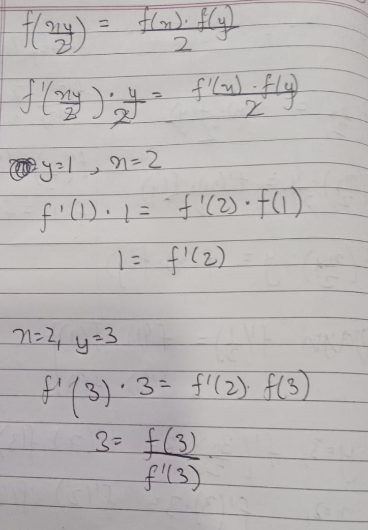 f(xy/2) = f(x)·f(y)/2
f'(xy/2)·y/2 = f'(x)·f(y)/2
y=1, x=2
f'(1)·1 = f'(2)·f(1)
1 = f'(2)
x=2, y=3
f'(3)·3 = f'(2)·f(3)
3 = f(3)/f'(3)